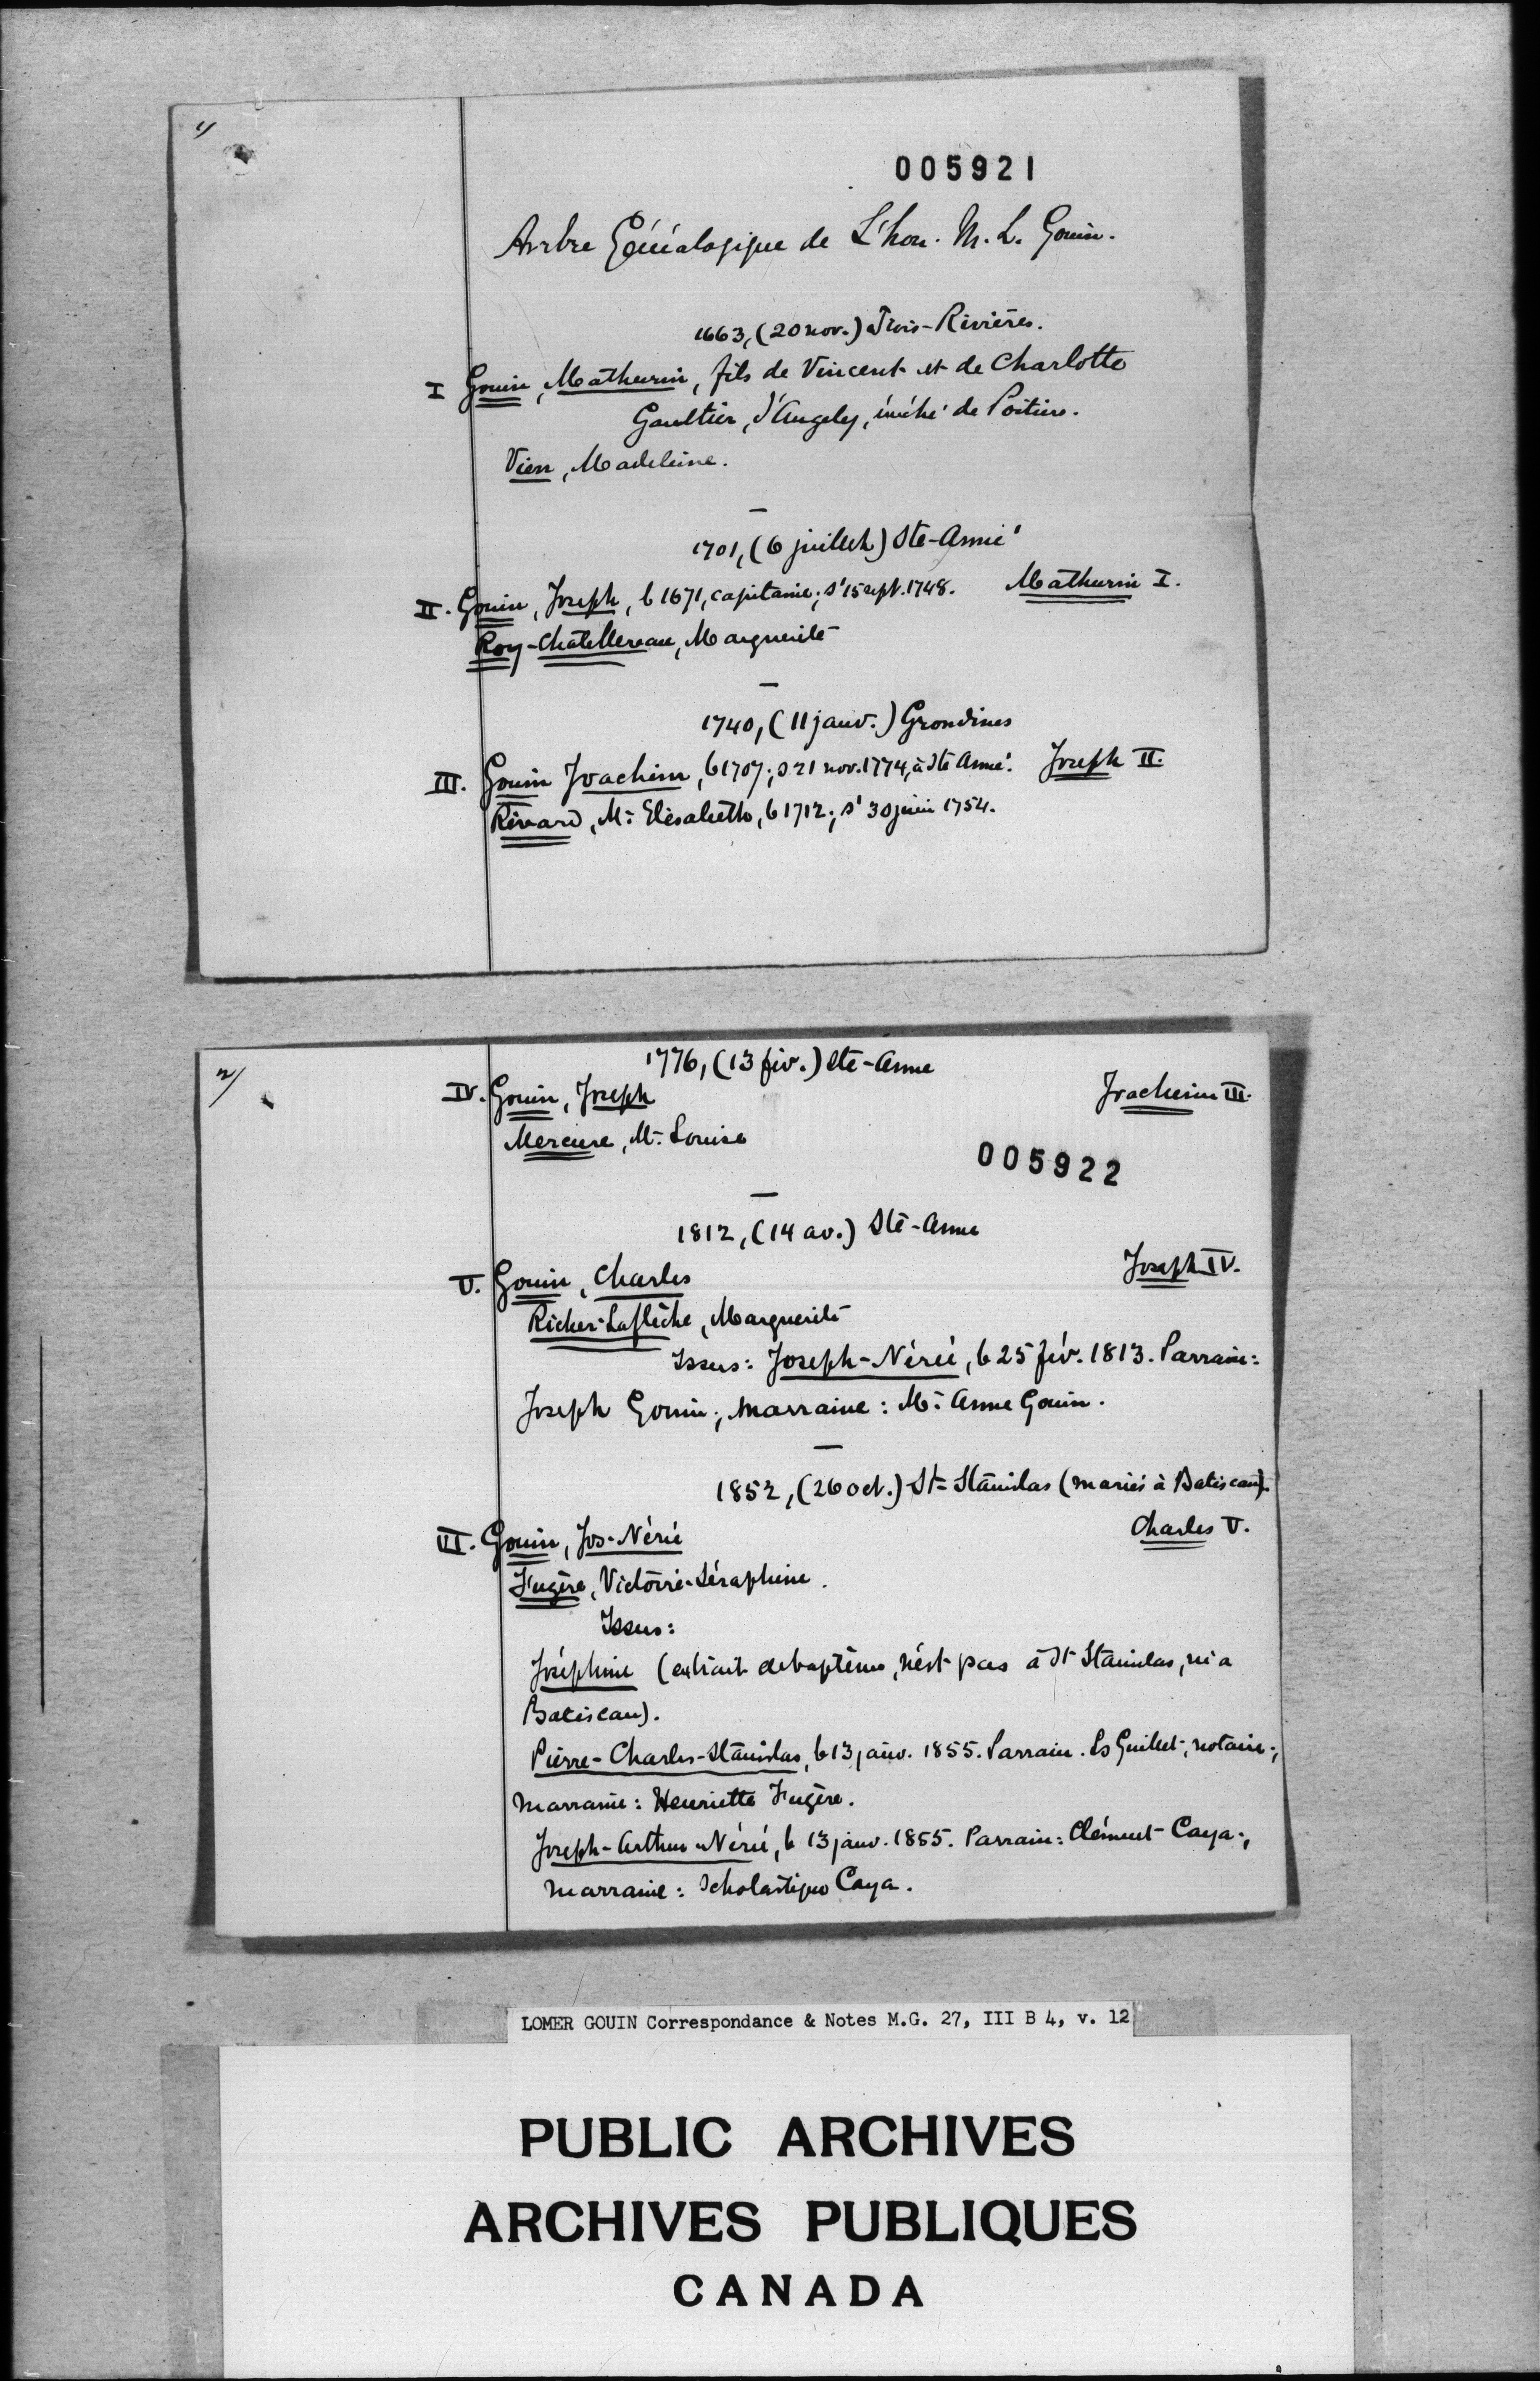 1/
005921
Arbre Généalogique de L'hon. M. L. Gouin.
1663, (20 nov.) Trois-Rivières.
I Gouin, Mathurin, fils de Vincent et de Charlotte
Gaultier, d'Angely, évêché de Poitiers.
Vien, Madeleine.
—
1701, (6 juillet) Ste-Anne
II. Gouin, Joseph, b 1671, capitaine; s' 15 sept. 1748. Mathurin I.
Roy-Châtellereau, Marguerite
—
1740, (11 janv.) Grondines
III. Gouin Joachim, b 1707; s 21 nov. 1774, à Ste Anne. Joseph II.
Rivard, M. Elisabeth, b 1712; s' 30 juin 1754.
2/
1776, (13 fév.) Ste-Anne
IV. Gouin, Joseph Joachim III.
Mercure, M. Louise
005922
—
1812, (14 av.) Ste-Anne
V. Gouin, Charles Joseph IV.
Richer-Laflèche, Marguerite
Issus: Joseph-Nérée, b 25 fév. 1813. Parrain:
Joseph Gouin; marraine: M. Anne Gouin.
—
1852, (26 oct.) St-Stanislas (mariés à Batiscan).
VI. Gouin, Jos-Nérée Charles V.
Fugère, Victoire-Séraphine.
Issus:
Joséphine (extrait de baptême, n'est pas à St Stanislas, ni a
Batiscan).
Pierre-Charles-Stanislas, b 13 janv. 1855. Parrain. Ls Guillet, notaire;
marraine: Henriette Fugère.
Joseph-Arthur-Nérée, b 13 janv. 1855. Parrain: Clément Caya;
marraine: Scholastique Caya.
LOMER GOUIN Correspondance & Notes M.G. 27, III B 4, v. 12
PUBLIC ARCHIVES
ARCHIVES PUBLIQUES
CANADA